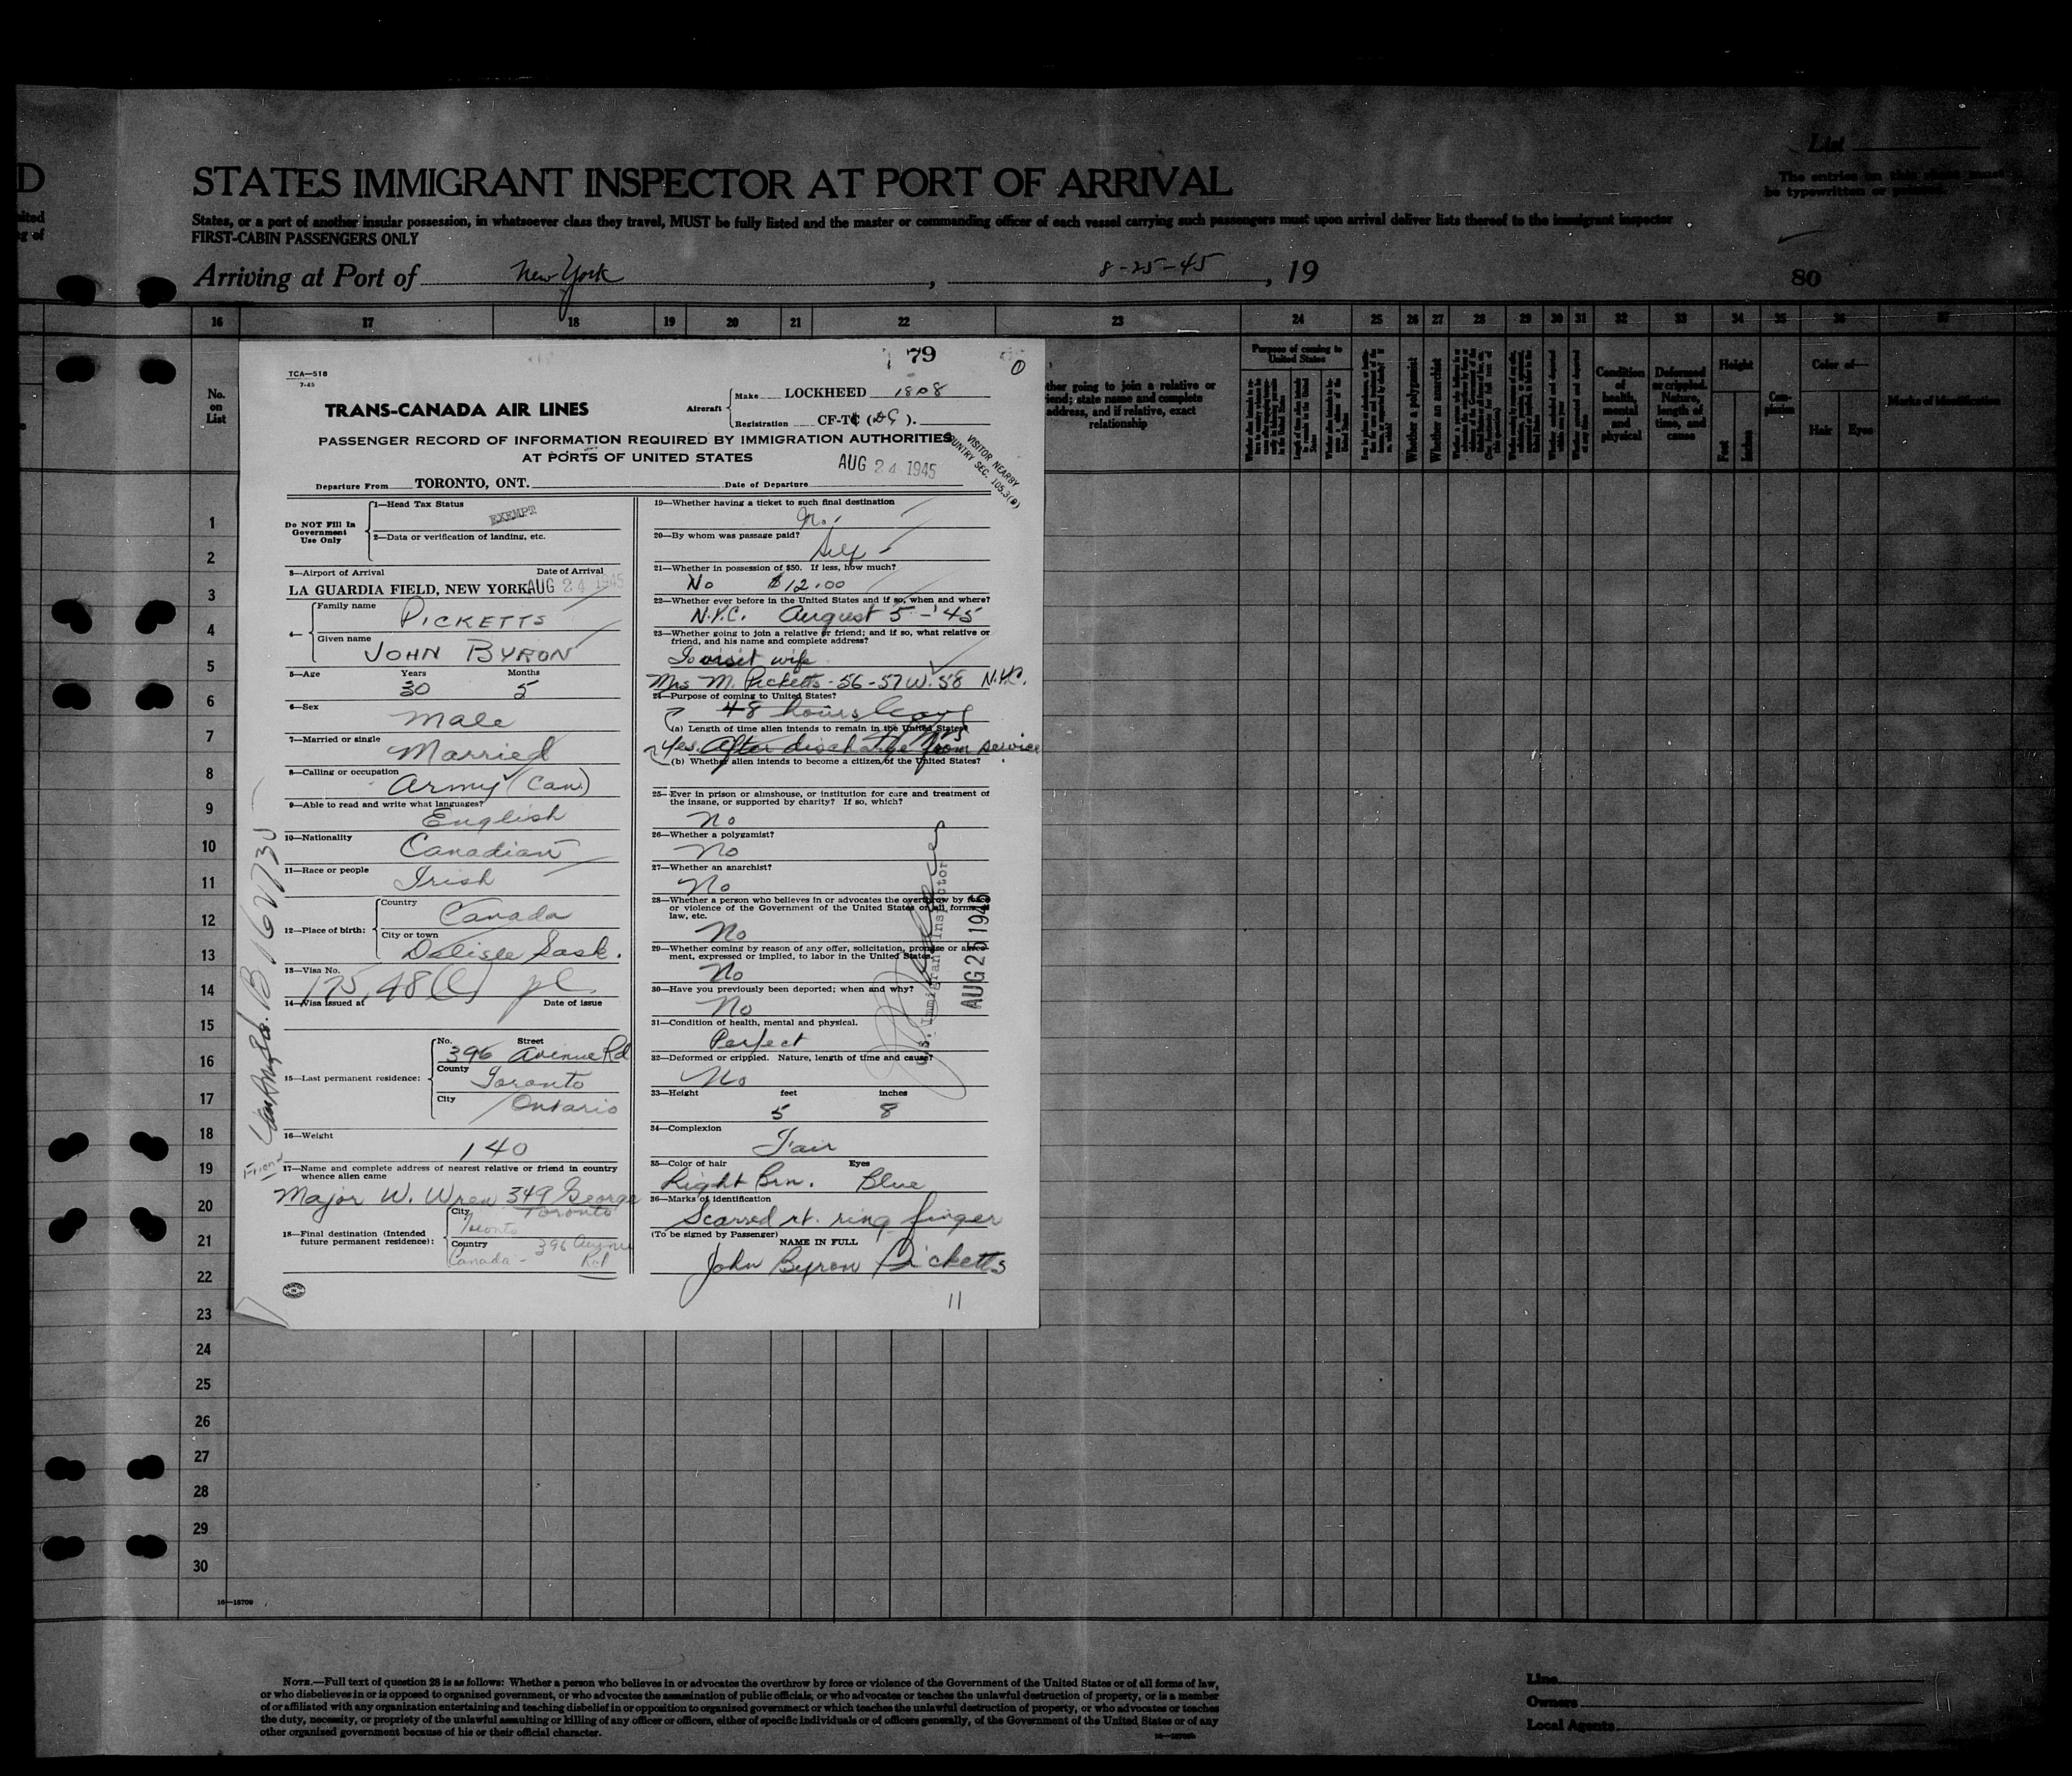 D
List
STATES IMMIGRANT INSPECTOR AT PORT OF ARRIVAL
The entries on this sheet must
be typewritten or printed.
States, or a port of another insular possession, in whatsoever class they travel, MUST be fully listed and the master or commanding officer of each vessel carrying such passengers must upon arrival deliver lists thereof to the immigrant inspector
FIRST-CABIN PASSENGERS ONLY
Arriving at Port of New York, 8-25-45, 19
80
16 17 18 19 20 21 22 23 24 25 26 27 28 29 30 31 32 33 34 35 36 37
No.
on
List
79
TCA—518
7-45
TRANS-CANADA AIR LINES
Aircraft
Make LOCKHEED 1808
Registration CF-TC ( ).
PASSENGER RECORD OF INFORMATION REQUIRED BY IMMIGRATION AUTHORITIES
AT PORTS OF UNITED STATES
VISITOR NEARBY
COUNTRY SEC. 105.3(a)
Departure From TORONTO, ONT.
Date of Departure AUG 24 1945
Do NOT Fill In
Government
Use Only
1—Head Tax Status
EXEMPT
2—Data or verification of landing, etc.
3—Airport of Arrival Date of Arrival
LA GUARDIA FIELD, NEW YORK AUG 24 1945
4—
Family name
PICKETTS
Given name
JOHN BYRON
5—Age Years Months
30 5
6—Sex
Male
7—Married or single
Married
8—Calling or occupation
Army (Can)
9—Able to read and write what languages?
English
10—Nationality
Canadian
11—Race or people
Irish
12—Place of birth:
Country
Canada
City or town
Delisle Sask.
13—Visa No.
14—Visa issued at Date of issue
15—Last permanent residence:
No. Street
396 Avenue Rd
County
Toronto
City
Ontario
16—Weight
140
Friend
17—Name and complete address of nearest relative or friend in country
whence alien came
Major W. Wren 349 George
Toronto
18—Final destination (Intended
future permanent residence):
City
Toronto
Country
Canada - 396 Avenue
Rd
19—Whether having a ticket to such final destination
No.
20—By whom was passage paid?
Self
21—Whether in possession of $50. If less, how much?
No $12.00
22—Whether ever before in the United States and if so, when and where?
N.Y.C. August 5 - '45
23—Whether going to join a relative or friend; and if so, what relative or
friend, and his name and complete address?
To visit wife
Mrs M. Picketts - 56-57 W. 58 N.Y.C.
24—Purpose of coming to United States?
48 hours leave
(a) Length of time alien intends to remain in the United States?
Yes. After discharge from service
(b) Whether alien intends to become a citizen of the United States?
25—Ever in prison or almshouse, or institution for care and treatment of
the insane, or supported by charity? If so, which?
No
26—Whether a polygamist?
No
27—Whether an anarchist?
No
28—Whether a person who believes in or advocates the overthrow by force
or violence of the Government of the United States or all forms of
law, etc.
No
29—Whether coming by reason of any offer, solicitation, promise or agreement, expressed or implied, to labor in the United States.
No
30—Have you previously been deported; when and why?
No
31—Condition of health, mental and physical.
Perfect
32—Deformed or crippled. Nature, length of time and cause?
No
33—Height feet inches
5 8
34—Complexion
Fair
35—Color of hair Eyes
Light Brn. Blue
36—Marks of identification
Scarred rt. ring finger
(To be signed by Passenger)
NAME IN FULL
John Byron Picketts
11
U.S. Immigrant Inspector
AUG 25 1945
ther going to join a relative or
iend; state name and complete
address, and if relative, exact
relationship
Purpose of coming to
United States
Whether a polygamist
Whether an anarchist
Condition
of
health,
mental
and
physical
Deformed
or crippled.
Nature,
length of
time, and
cause
Height
Feet
Inches
Com-
plexion
Color of—
Hair
Eyes
Marks of identification
1
2
3
4
5
6
7
8
9
10
11
12
13
14
15
16
17
18
19
20
21
22
23
24
25
26
27
28
29
30
16—18709
NOTE.—Full text of question 28 is as follows: Whether a person who believes in or advocates the overthrow by force or violence of the Government of the United States or of all forms of law,
or who disbelieves in or is opposed to organized government, or who advocates the assassination of public officials, or who advocates or teaches the unlawful destruction of property, or is a member
of or affiliated with any organization entertaining and teaching disbelief in or opposition to organized government or which teaches the unlawful destruction of property, or who advocates or teaches
the duty, necessity, or propriety of the unlawful assaulting or killing of any officer or officers, either of specific individuals or of officers generally, of the Government of the United States or of any
other organized government because of his or their official character.
Line
Owners
Local Agents